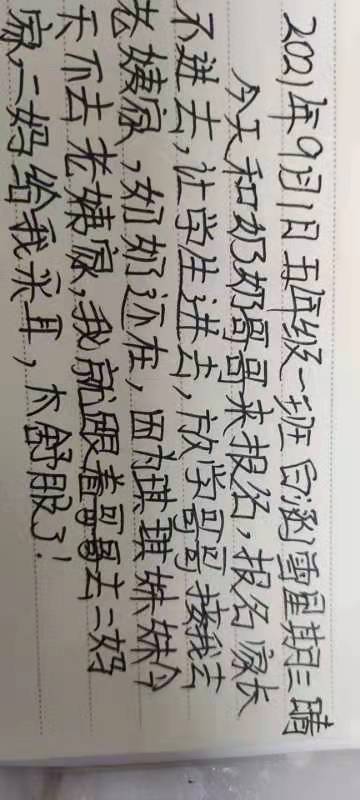 2021年9月1日五年级一班白涵雪星期三晴
今天和奶奶哥哥来报名,报名家长
不进去,让学生进去,放学哥哥接我去
老姨家,奶奶还在,因为琪琪妹妹今
天不去老姨家,我就跟着哥哥去二妈
家,二妈给我采耳,太舒服了!